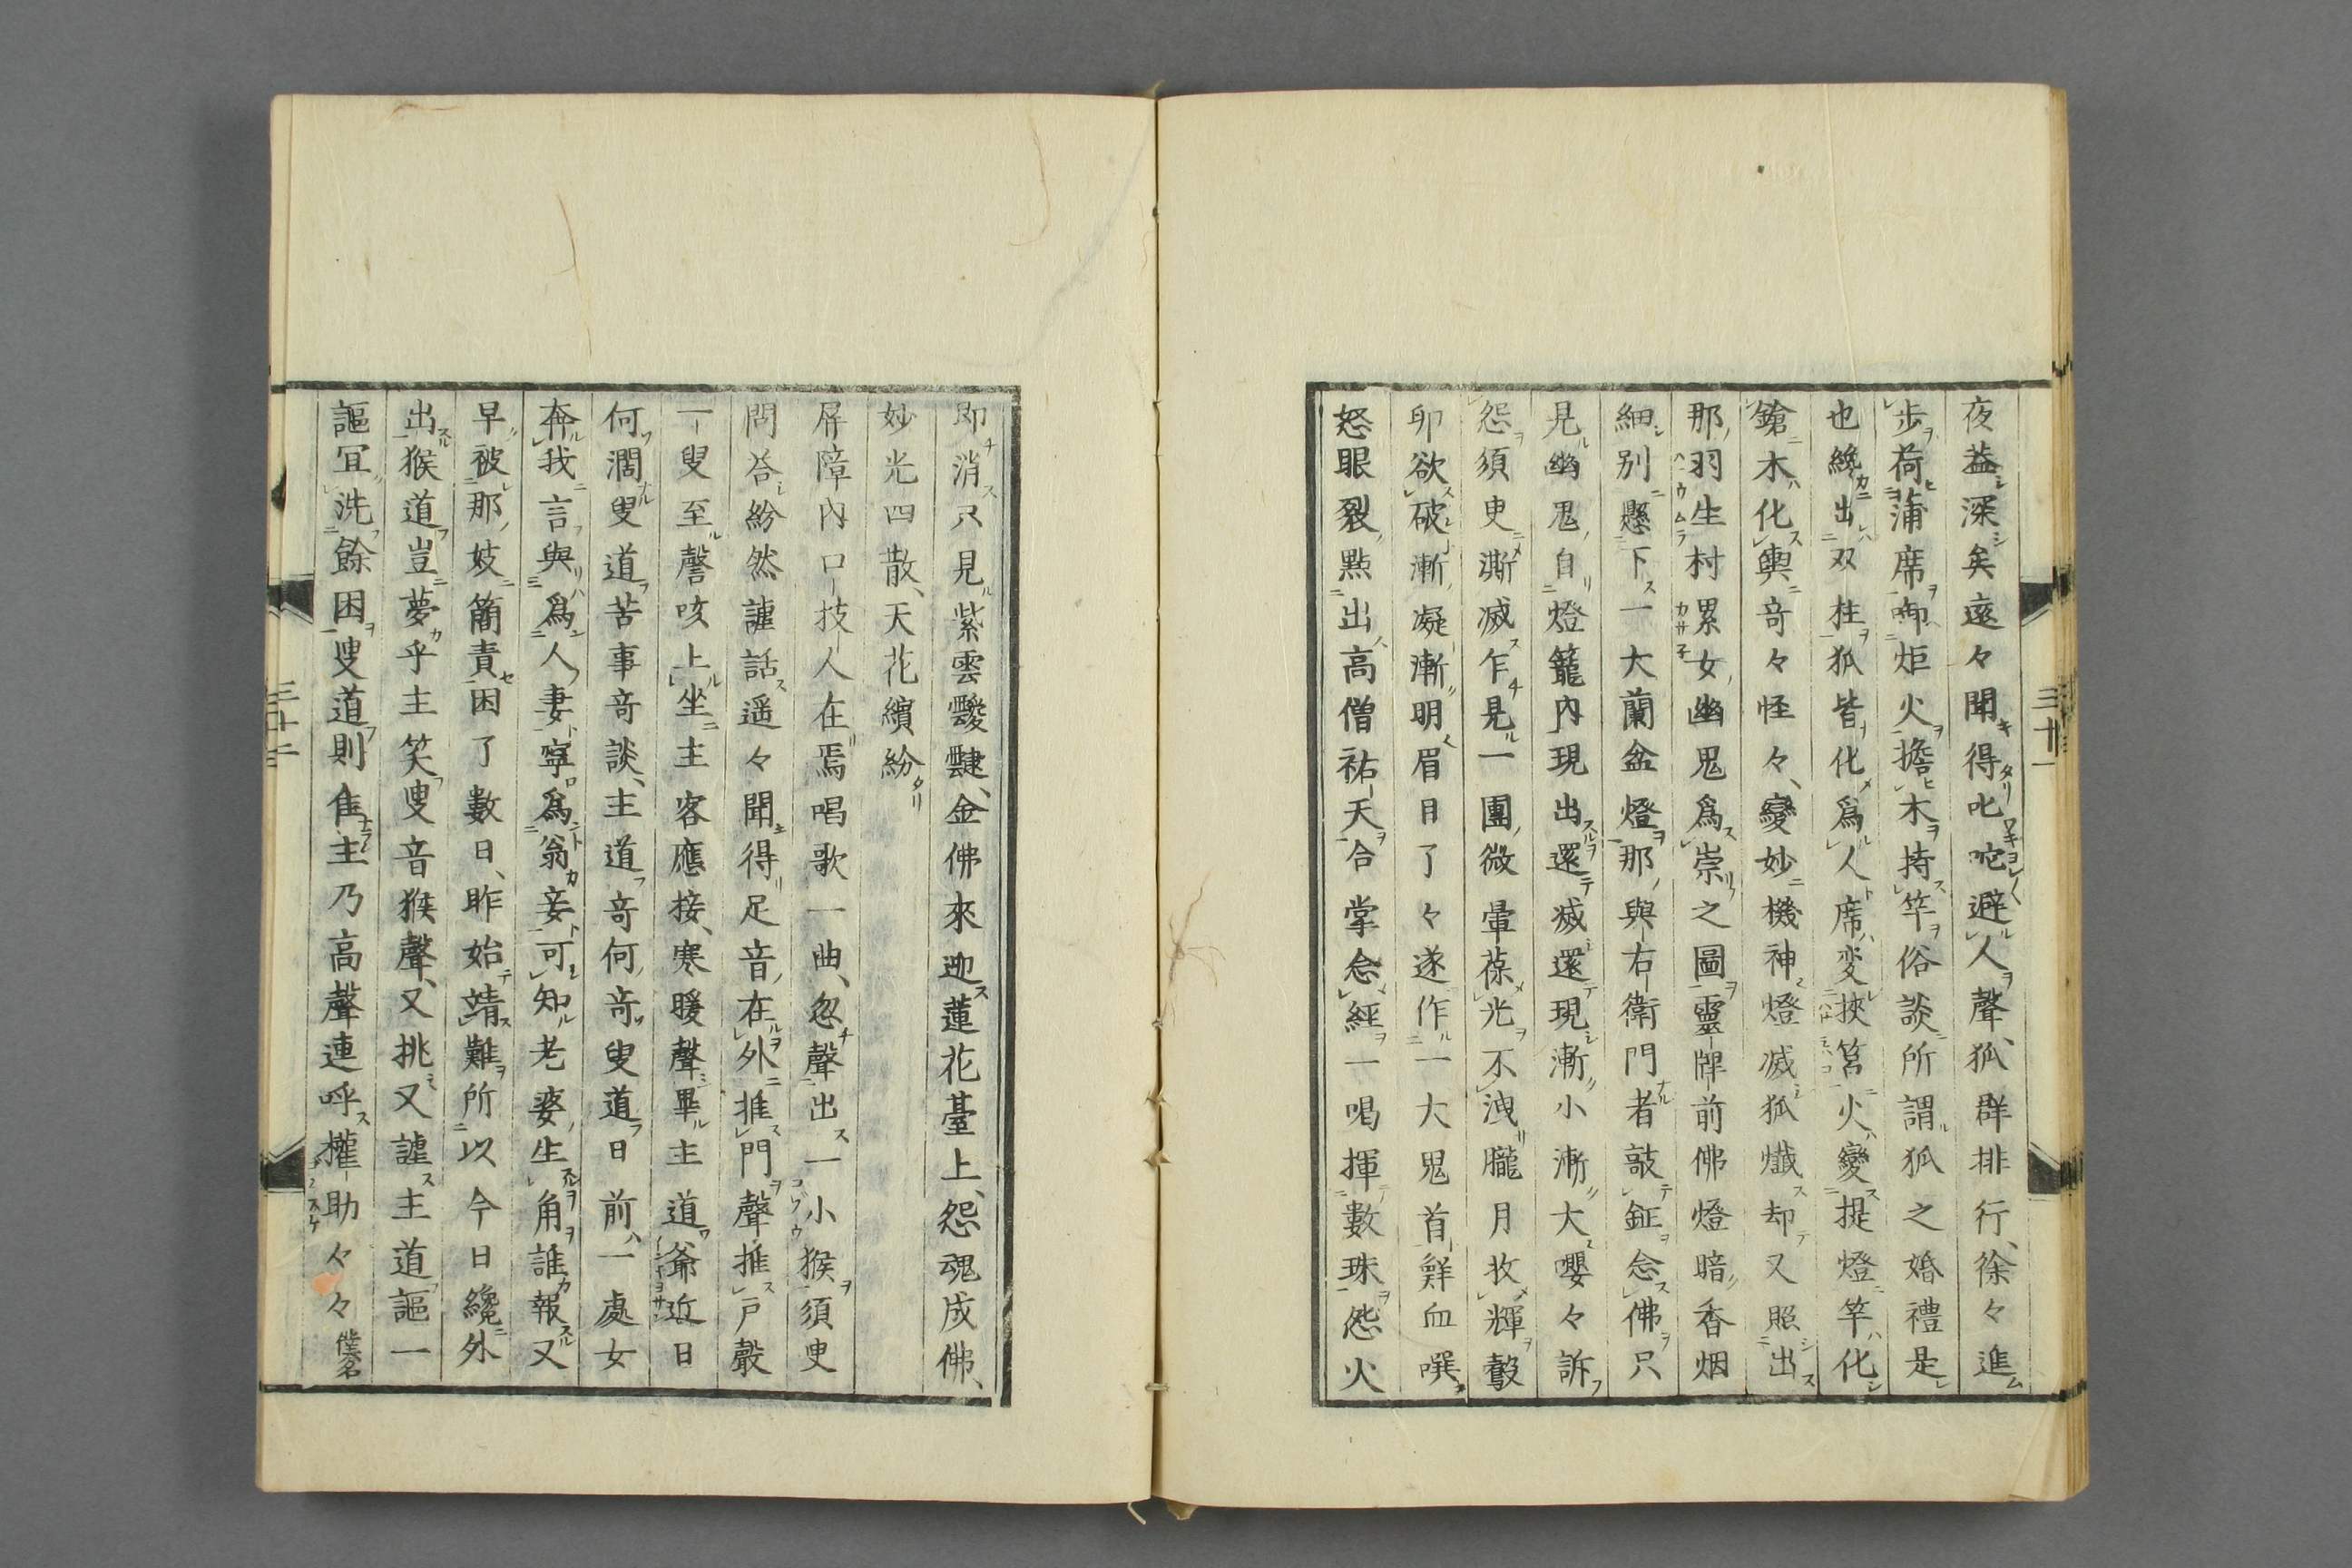 夜益深矣遠々聞得叱咜避人聲、狐群排行、徐々進
步荷蒲席啣炬火擔木持竿俗談所謂狐之婚禮是
也纔出双柱狐皆化爲人席変挾筥火變提燈竿化
鎗木化輿竒々怪々、變妙機神燈滅狐熸却又照出
那羽生村累女幽鬼爲祟之圖靈牌前佛燈暗香烟
細别懸下一大蘭盆燈那與右衛門者敲鉦念佛只
見幽鬼自燈籠內現出還滅還現漸小漸大嚶々訴
怨須臾澌滅乍見一團微暈葆光不洩朧月收輝鷇
卵欲破漸凝漸明眉目了々遂作一大鬼首鮮血噀
怒眼裂點出高僧祐天合掌念經一喝揮數珠怨火
三十一
即消只見紫雲靉靆、金佛來迎蓮花臺上、怨魂成佛、
妙光四散、天花繽紛
屏障內口技人在焉唱歌一曲、忽聲出一小猴須臾
問答紛然謔話遥々聞得足音在外推門聲推戸聲
一叟至謦咳上坐主客應接、寒暖聲畢主道爺近日
何濶叟道苦事竒談、主道竒何竒叟道日前一處女
奔我言與爲人妻寧爲翁妾可知老婆生角誰報又
早被那妓簡責困了數日、昨始靖難所以今日纔外
出猴道豈夢乎主笑叟音猴聲、又挑又謔主道謳一
謳冝洗餘困叟道則隹主乃高聲連呼權助々々僕名
三十二